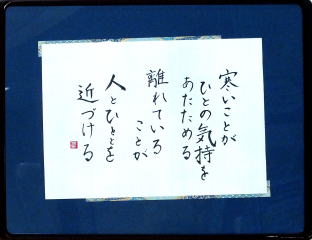 寒いことが
ひとの気持を
あたためる
離れている
ことが
人とひとを
近づける